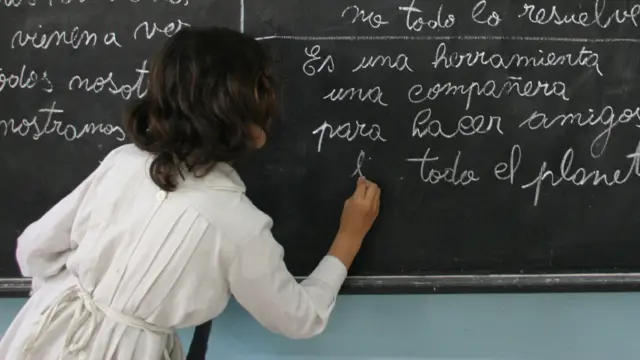 vienen a ver
todos nosot
nostramos
no todo lo resuelv
Es una herramienta
una compañera
para hacer amigos
todo el planet